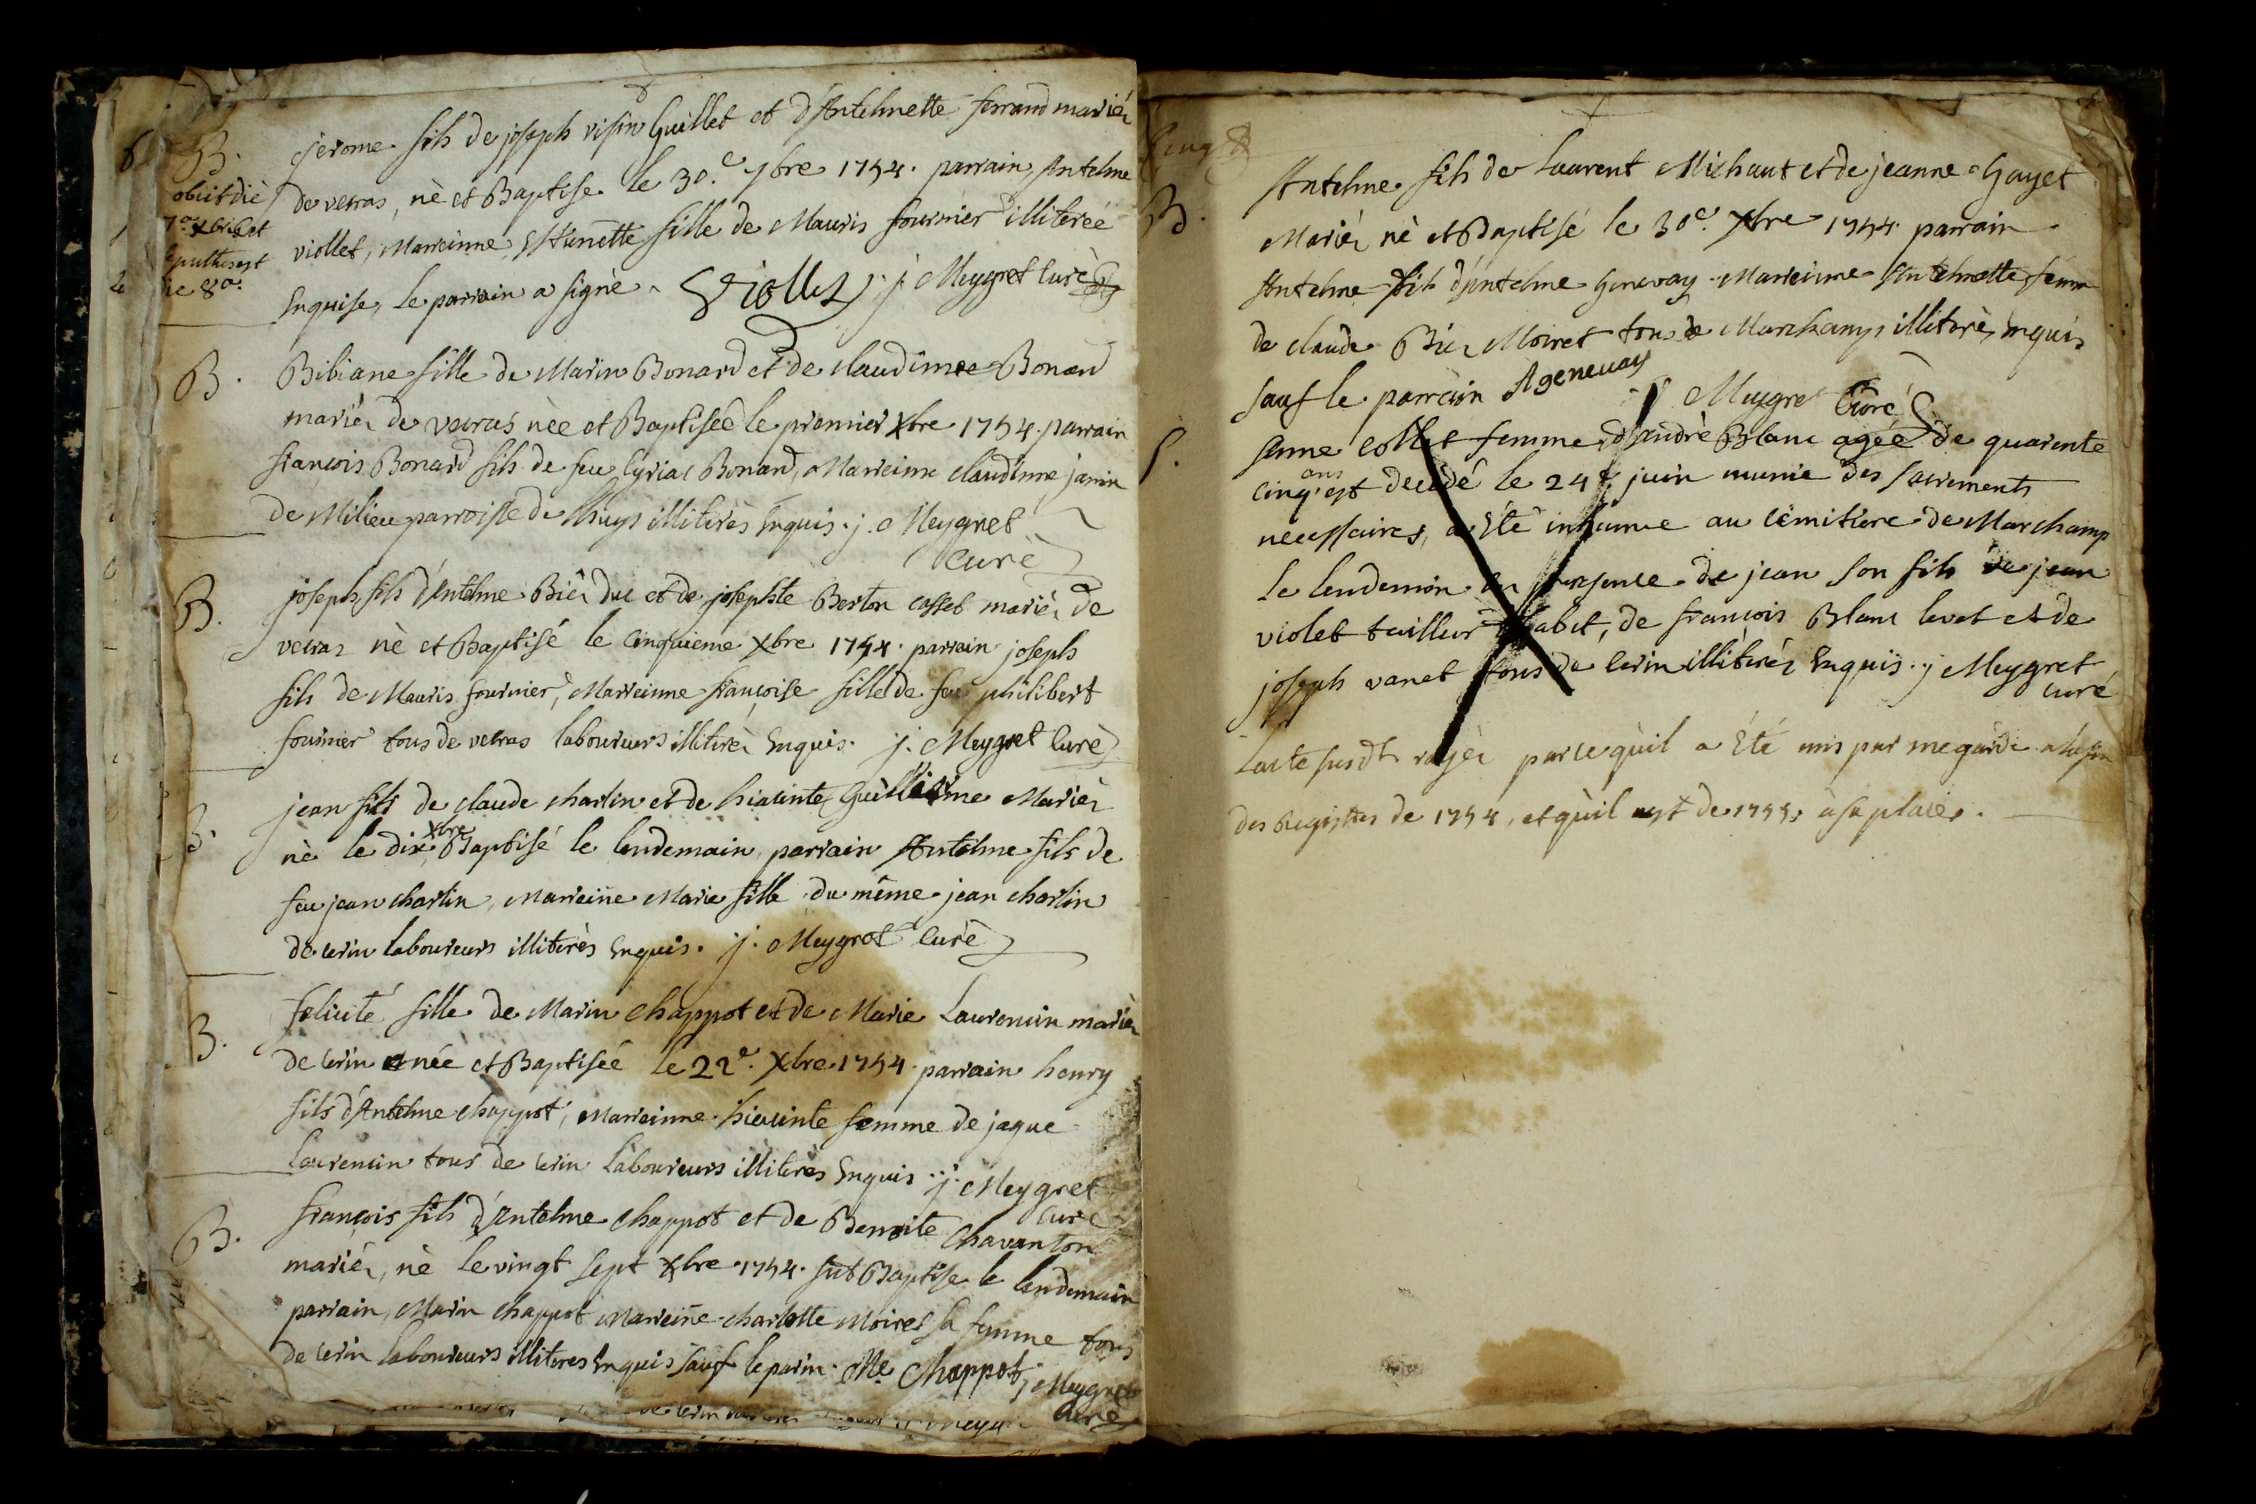 B.
obiit die
7a. Xbris et
sepultus est
ie 8a.
jerome fils de joseph visin Guillet et d'Antelmette ferrand mariés
de vetras, nè et Baptise le 30.e 9bre 1754. parrain Antelme
viollet, Marreinne, Estiennette fille de Mauris fournier illiterés
Enquise, le parrain a signè. Viollet j. Meygret Curè
B.
Bibiane fille de Marin Bonard et de claudinne Bonard
mariés de vetras nèe et Baptisèe le premier Xbre 1754. parrain
francois Bonard fils de feu Cyriac Bonard, Marreinne claudinne janin
de Milieu parroisse de Lhuys illiterès Enquis. j. Meygret
Curè
B.
joseph fils d'Antelme Biès duc et de josephte Berton casset mariès de
vetras nè et Baptisé le Cinquieme Xbre 1754. parrain joseph
fils de Mauris fournier, Marreinne francoise fille de feu philibert
fournier tous de vetras laboureurs illiterés Enquis. j. Meygret Curè
B.
jean fils de claude charlin et de hiacinte Guillierme Mariès
nè le dix Xbre Baptisé le lendemain, parrain Antelme fils de
feu jean charlin, Marreinne Marie fille du même jean charlin
de cerin laboureurs illiterès Enquis. j. Meygret Curè
B.
felicité fille de Marin chappot et de Marie Laurencin mariés
de cerin née et Baptisée le 22e. Xbre 1754. parrain henry
fils d'Antelme chappot, Marreinne hiacinte femme de jaque
Laurencin tous de cerin laboureurs illiterès Enquis. j. Meygret
Curè
B.
francois fils d'Antelme chappot et de Benoite Chavanton
mariés, nè le vingt sept Xbre 1754. fut Baptise le lendemain
parrain, Marin chappot Marreinne charlotte Moiret sa femme tous
de cerin laboureurs illiteres Enquis sauf le parin. Me. Chappot j Meygret
Curè
B.
Antelme fils de Laurent Michaut et de jeanne Gayet
Mariés nè et Baptisé le 30e. Xbre 1754. parrain
Antelme fils d'Antelme Genevay Marreinne Antelmette femme
de claude Biès Moiret tous de Marchamp illiterès Enquis
sauf le parrain AGenevay
j Meygret Curé
S.
Anne Collet femme d'Andrè Blanc agée de quarente
cinq ans est decedé le 24e juin munie des sacrements
necessaires, a Etè inhumé au cemitiere de Marchamp
le lendemain en presence de jean son fils de jean
violet tailleur d'habit, de francois Blanc levet et de
joseph vanet tous de cerin illiterés Enquis. j Meygret
curé
L'acte susdt rayés parcequ'il a Été mis par megarde a la fin
des Registres de 1754, et qu'il est de 1755 à sa place.